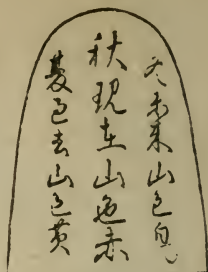 冬未来山色
秋現在山色赤
夏過去山色黄